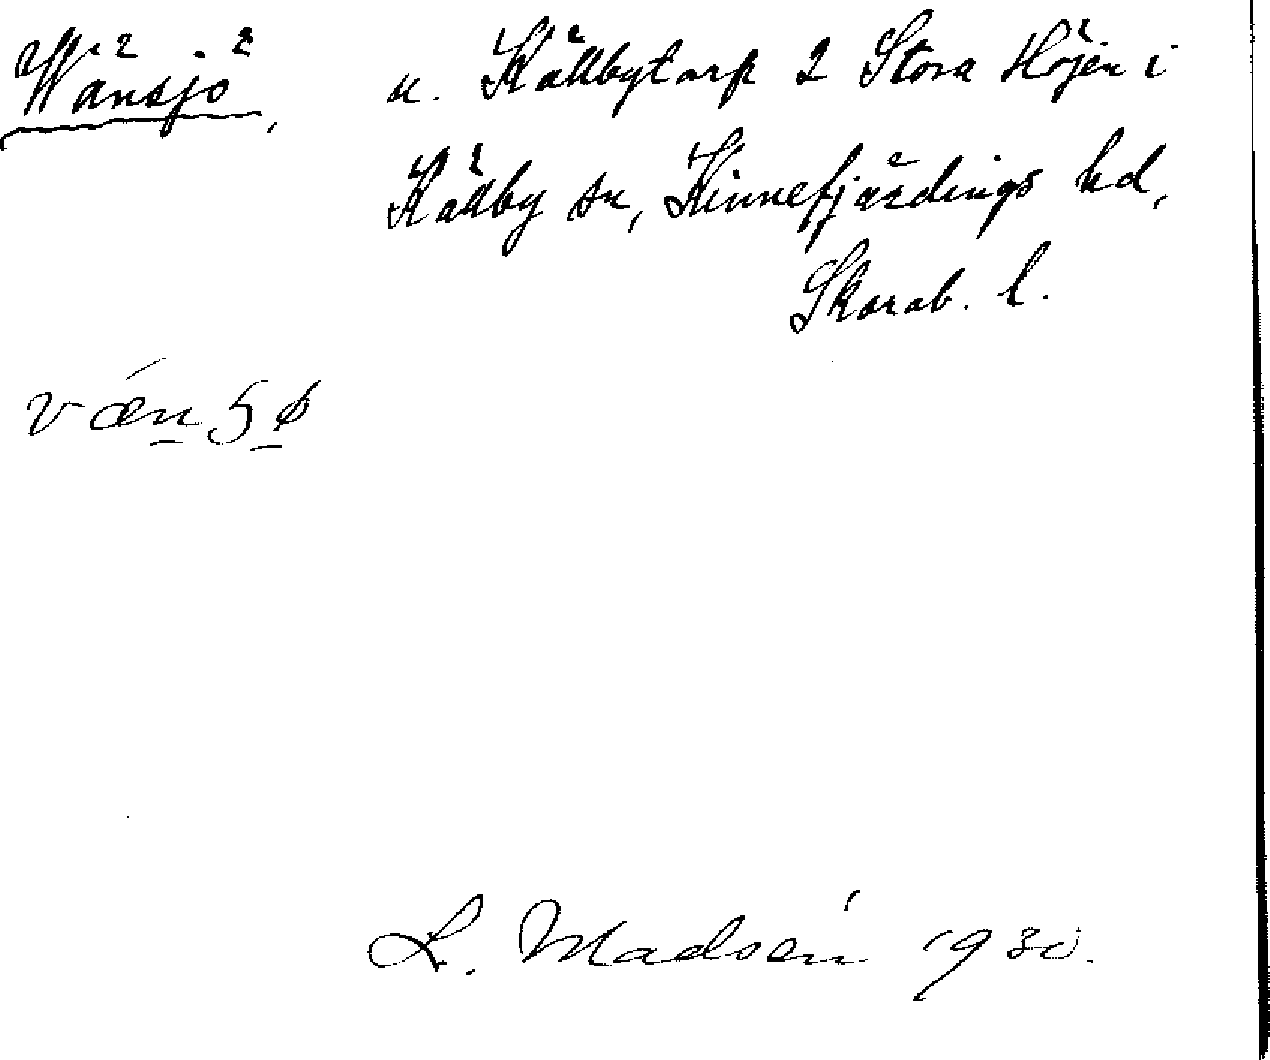 Wänsjö, u. Källbytorp 2 Stora Höjen i
Källby sn, Kinnefjärdings hd,
Skarab. l.
L. Madsén 1930.